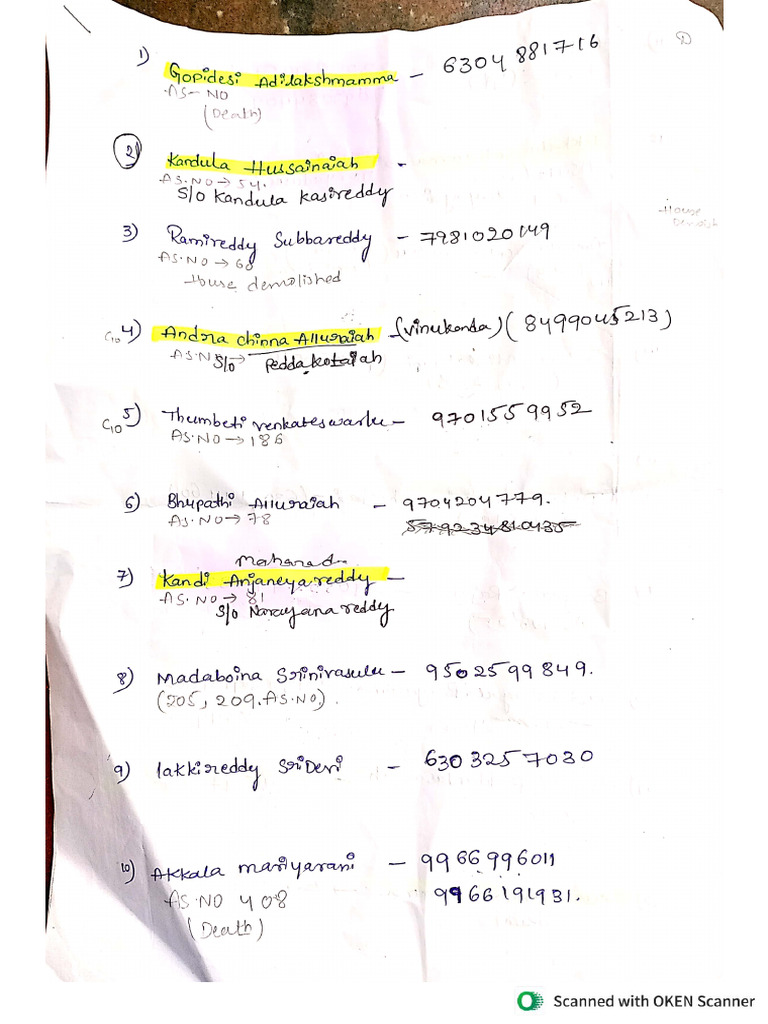 1) Gopidesi Adilakshmamma - 6304881716
AS-NO
(Death)
2) Kandula Hussainaiah -
AS.NO → 54.
S/o Kandula Kasireddy
3) Ramireddy Subbareddy - 7981020149
AS.NO → 68
House demolished
House
4) Andra Chinna Alluraiah - (Vinukonda) (8499045213)
AS.No → S/o Pedda Kotaiah
5) Thumbeti Venkateswarlu - 9701559952
AS.NO → 186
6) Bhupathi Alluraiah - 9704204779.
AS.NO → 78
7) Kandi Anjaneya reddy -
AS.NO → 81
S/o Narayana reddy
8) Madaboina Srinivasulu - 9502599849.
(205, 209.AS.NO).
9) lakkireddy SriDevi - 6303257030
10) Akkala Mariyarani - 9966996011
AS.NO 408 9966191931.
(Death)
Scanned with OKEN Scanner